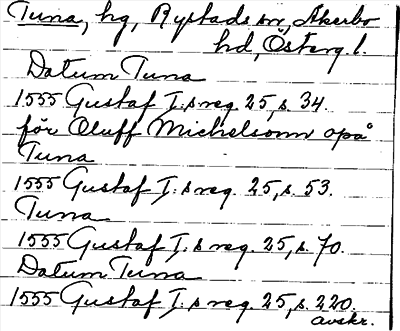 Tuna, hg, Rystads sn, Åkerbo
hd, Österg l.
Datum Tuna
1555 Gustaf I:s reg. 25, s. 34.
för Oluff Michelsonn opå
Tuna
1555 Gustaf I:s reg. 25, s. 53.
Tuna
1555 Gustaf I:s reg. 25, s. 70.
Datum Tuna
1555 Gustaf I:s reg. 25, s. 220.
avskr.